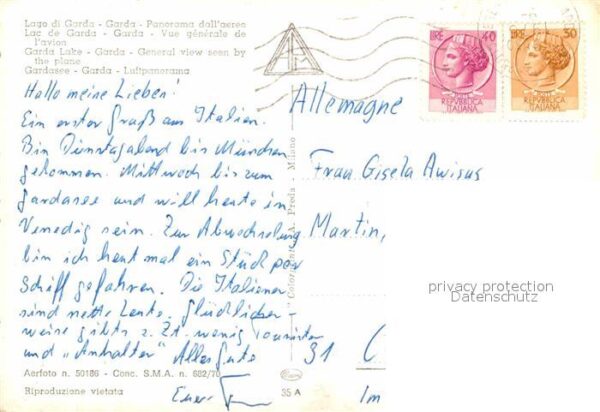 Lago di Garda - Garda - Panorama dall'aereo
Lac de Garda - Garda - Vue générale de
l'avion
Garda Lake - Garda - General view seen by
the plane
Gardasee - Garda - Luftpanorama
Hallo meine Lieben!
Ein erster Gruß aus Italien.
Bin Dienstagabend bis München
gekommen. Mittwoch bis zum
Gardasee und will heute in
Venedig sein. Zur Abwechselung
bin ich heut mal ein Stück per
Schiff gefahren. Die Italiener
sind nette Leute. Glücklicher-
weise gibts z. Zt. wenig Touristen
und "Anhalter" Alles Gute
Euer
Aerfoto n. 50186 - Conc. S.M.A. n. 682/70
Riproduzione vietata
35 A
Milano
LIRE 40
POSTE
REPVBBLICA
ITALIANA
LIRE 50
POSTE
REPVBBLICA
ITALIANA
Allemagne
Frau Gisela Awisus
Martin,
privacy protection
Datenschutz
31
Im